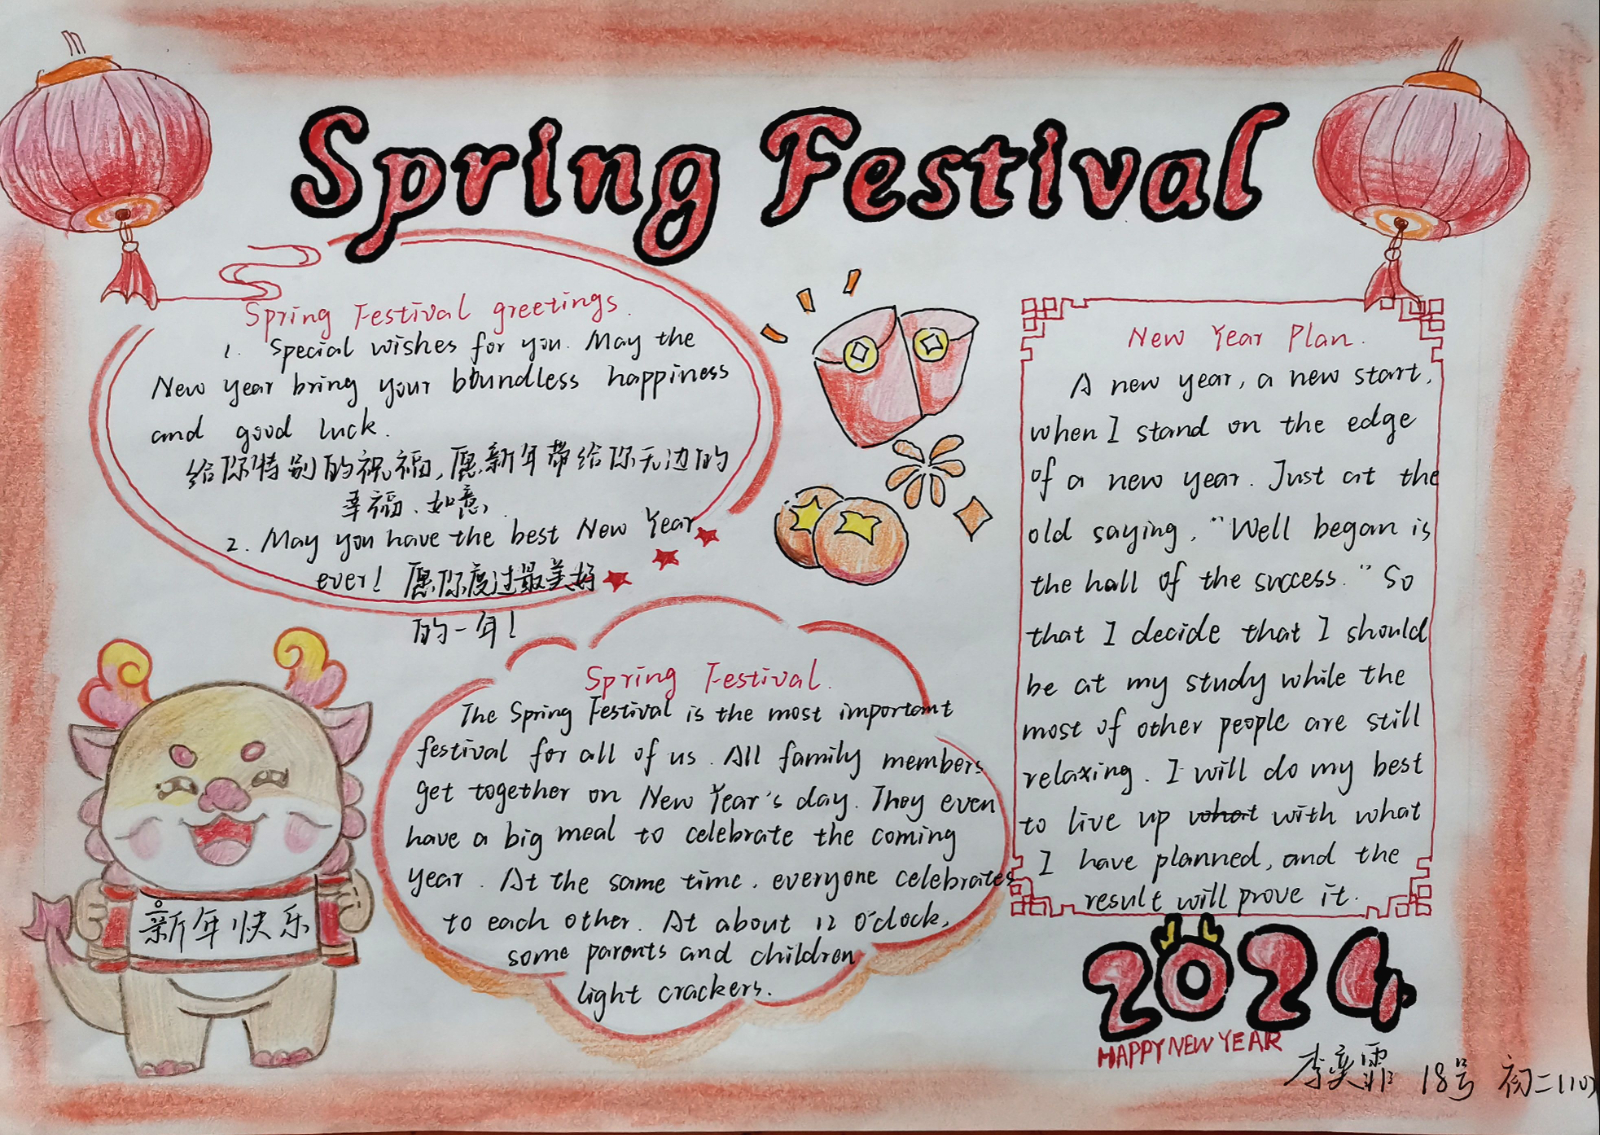 Spring Festival
Spring Festival greetings.
1. Special wishes for you. May the
New year bring your boundless happiness
and good luck.
给你特别的祝福,愿新年带给你无边的
幸福、如意,
2. May you have the best New Year
ever! 愿你度过最美好
的一年!
Spring Festival.
The Spring Festival is the most important
festival for all of us. All family members
get together on New Year's day. They even
have a big meal to celebrate the coming
year. At the same time, everyone celebrates
to each other. At about 12 O'clock,
some parents and children
light crackers.
New Year Plan.
A new year, a new start,
when I stand on the edge
of a new year. Just at the
old saying, "Well began is
the hall of the success." So
that I decide that I should
be at my study while the
most of other people are still
relaxing. I will do my best
to live up what with what
I have planned, and the
result will prove it.
新年快乐
2024
HAPPY NEW YEAR
李奕霏 18号 初二(10)